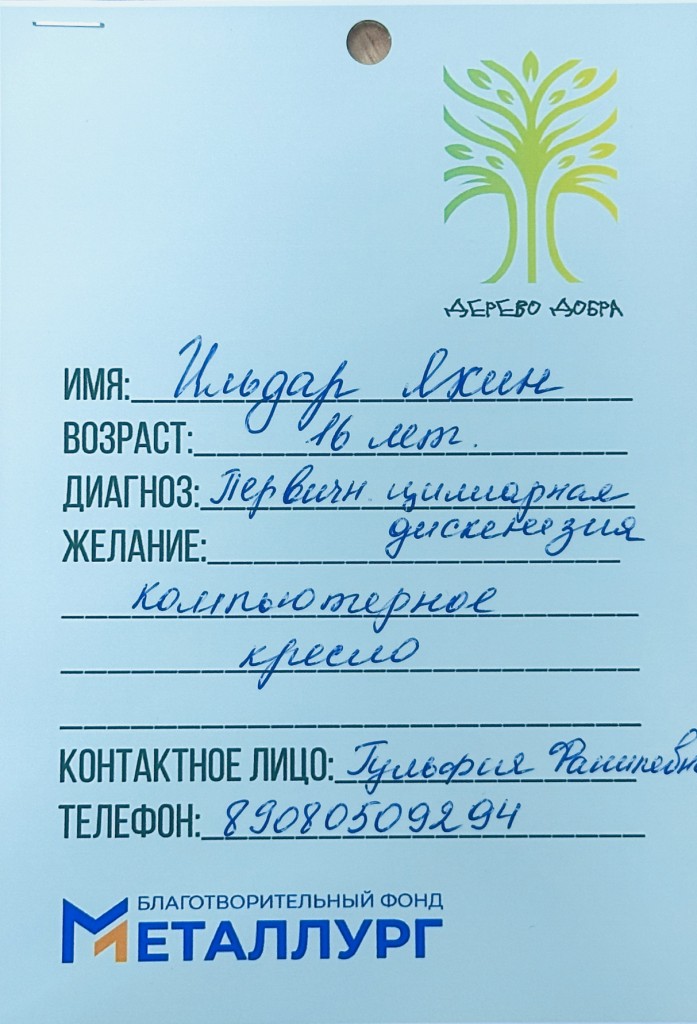 ДЕРЕВО ДОБРА
ИМЯ: Ильдар Яхин
ВОЗРАСТ: 16 лет.
ДИАГНОЗ: Первичн. цилиарная
дискенезия
ЖЕЛАНИЕ:
компьютерное
кресло
КОНТАКТНОЕ ЛИЦО: Гульфия
ТЕЛЕФОН: 89080509294
БЛАГОТВОРИТЕЛЬНЫЙ ФОНД
МЕТАЛЛУРГ